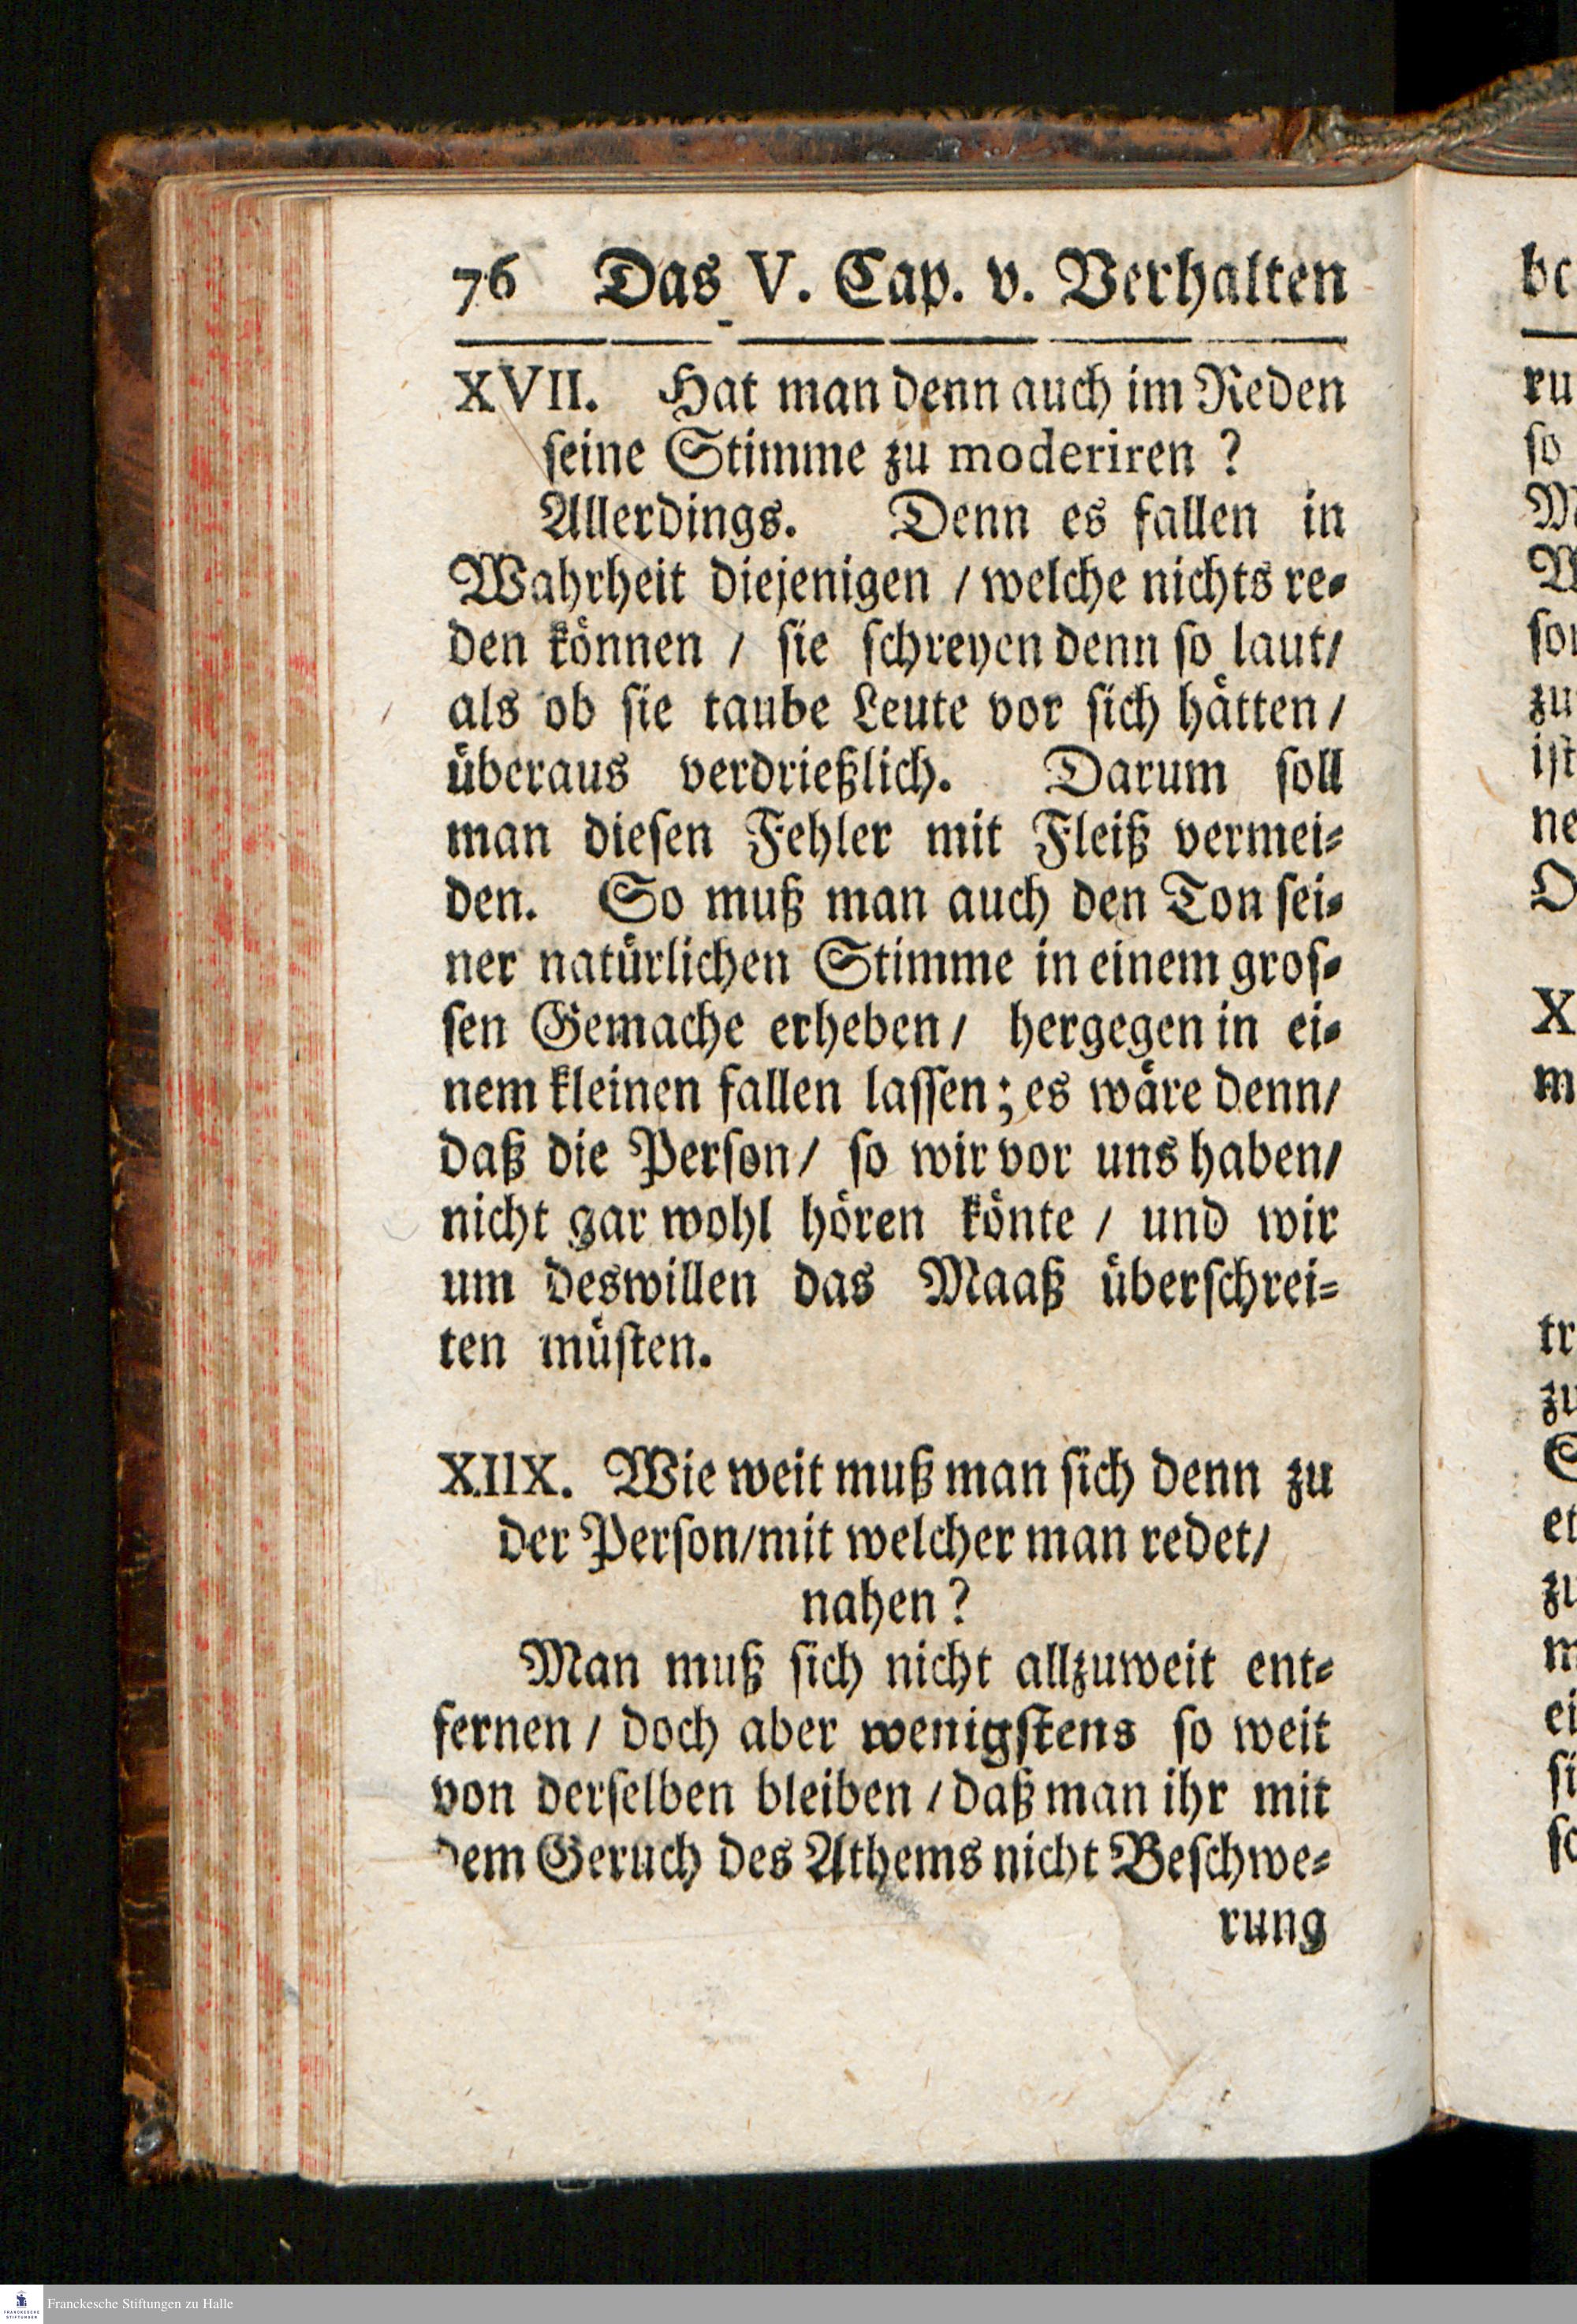 76 Das V. Cap. v. Verhalten
XVII. Hat man denn auch im Reden
ſeine Stimme zu moderiren ?
Allerdings. Denn es fallen in
Wahrheit diejenigen / welche nichts re-
den koͤnnen / ſie ſchreyen denn ſo laut/
als ob ſie taube Leute vor ſich haͤtten /
uͤberaus verdrießlich. Darum ſoll
man dieſen Fehler mit Fleiß vermei-
den. So muß man auch den Ton ſei-
ner natuͤrlichen Stimme in einem groſ-
ſen Gemache erheben / hergegen in ei-
nem kleinen fallen laſſen; es waͤre denn/
daß die Perſon / ſo wir vor uns haben/
nicht gar wohl hoͤren koͤnte / und wir
um deswillen das Maaß uͤberſchrei-
ten muͤſten.
XIIX. Wie weit muß man ſich denn zu
der Perſon/mit welcher man redet/
nahen?
Man muß ſich nicht allzuweit ent-
fernen / doch aber wenigſtens ſo weit
von derſelben bleiben / daß man ihr mit
dem Geruch des Athems nicht Beſchwe-
rung
be
ru
ſo
zu
iſt
ne
X
m
tr
zu
et
zu
m
ei
ſi
Franckesche Stiftungen zu Halle